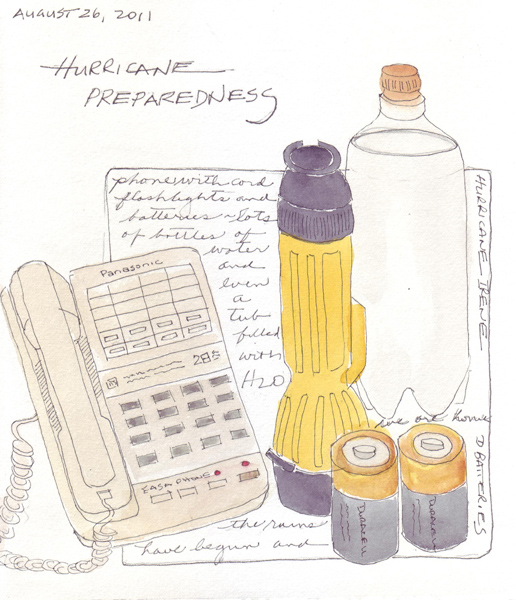 AUGUST 26, 2011
HURRICANE
PREPAREDNESS
phone with cord
flashlights and
batteries ~ lots
of bottles of
water
and
even
a
tub
filled
with
H2O
Panasonic
28
EASA PHONE
HURRICANE IRENE
D BATTERIES
we are home
the rains
have begun and
DURACELL
DURACELL